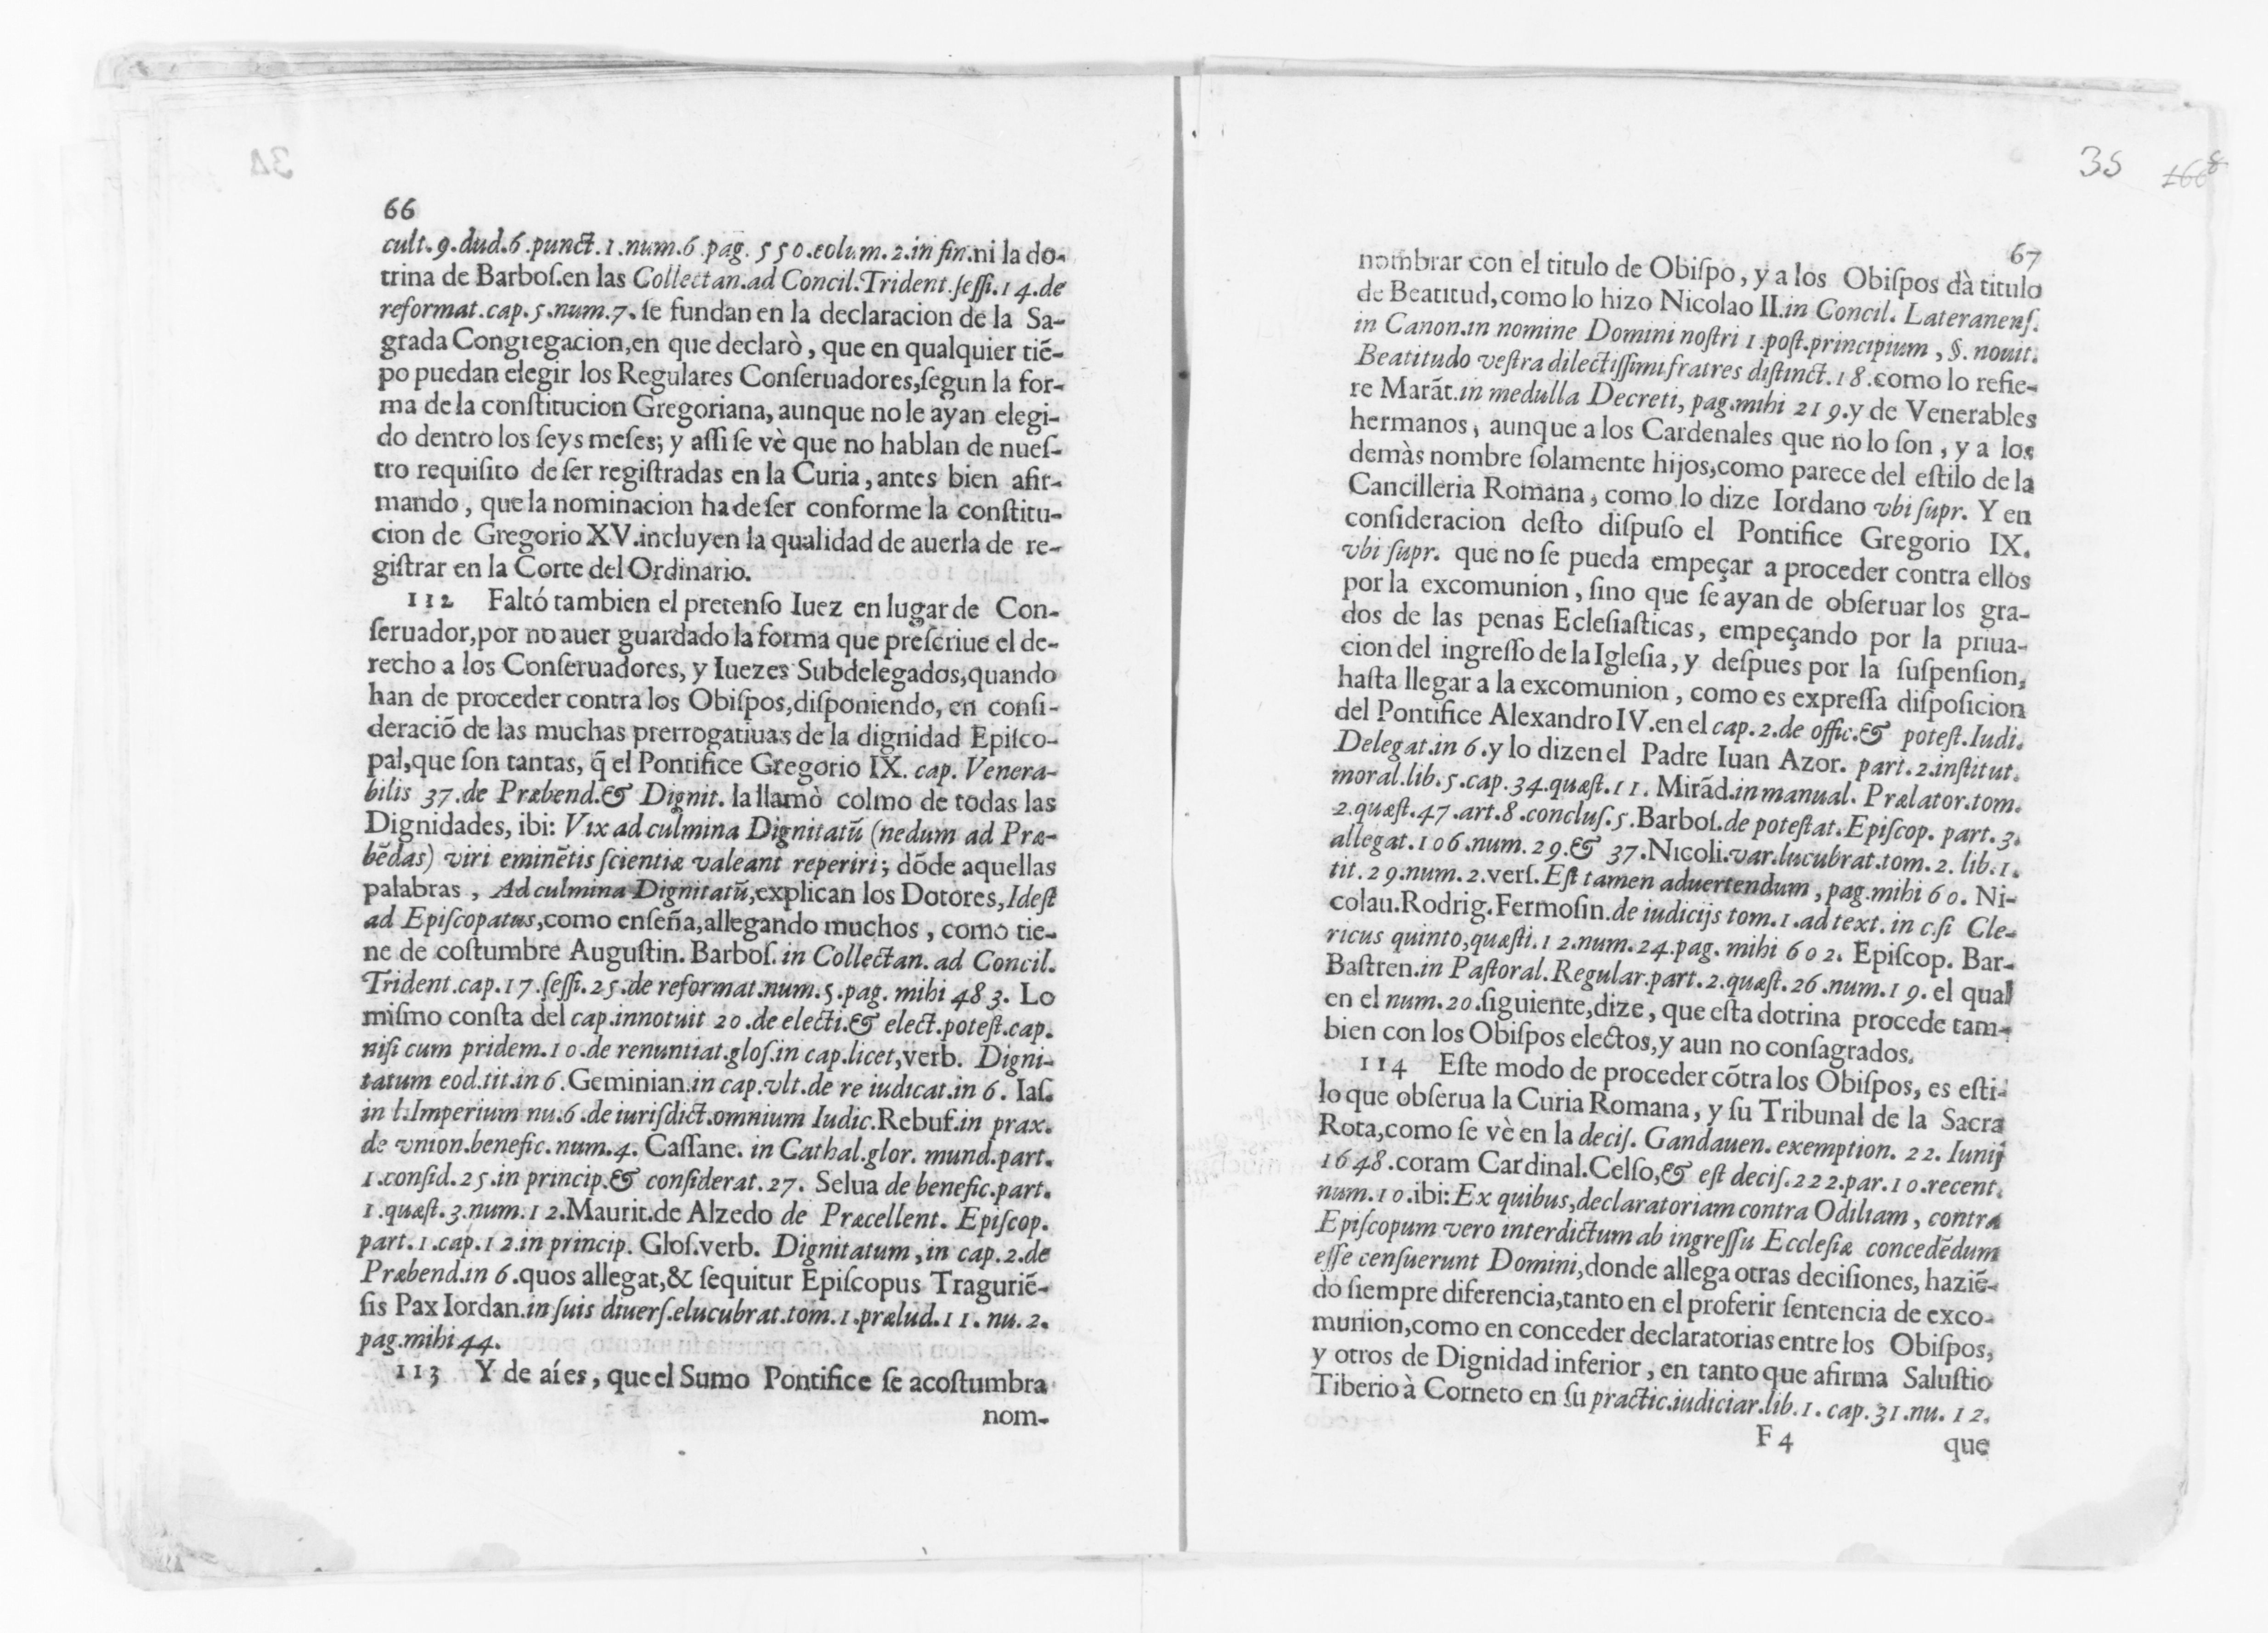 66
cult.9.dud.6.punct.1.num.6.pag.550.colum.2.in fin.ni la do-
trina de Barboſ.en las Collectan.ad Concil.Trident.ſeſſi.14.de
reformat.cap.5.num.7. ſe fundan en la declaracion de la Sa-
grada Congregacion,en que declarò, que en qualquier tiẽ-
po puedan elegir los Regulares Conſeruadores,ſegun la for-
ma de la conſtitucion Gregoriana, aunque no le ayan elegi-
do dentro los ſeys meſes; y aſſi ſe vè que no hablan de nueſ-
tro requiſito de ſer regiſtradas en la Curia, antes bien afir-
mando, que la nominacion ha de ſer conforme la conſtitu-
cion de Gregorio XV.incluyen la qualidad de auerla de re-
giſtrar en la Corte del Ordinario.
112 Faltó tambien el pretenſo Iuez en lugar de Con-
ſeruador,por no auer guardado la forma que preſcriue el de-
recho a los Conſeruadores, y Iuezes Subdelegados,quando
han de proceder contra los Obiſpos,diſponiendo, en conſi-
deraciõ de las muchas prerrogatiuas de la dignidad Epiſco-
pal,que ſon tantas, q̃ el Pontifice Gregorio IX. cap. Venera-
bilis 37.de Præbend.& Dignit. la llamò colmo de todas las
Dignidades, ibi: Vix ad culmina Dignitatũ (nedum ad Præ-
bẽdas) viri eminẽtis ſcientiæ valeant reperiri; dõde aquellas
palabras, Ad culmina Dignitatũ,explican los Dotores, Ideſt
ad Epiſcopatus,como enſeña,allegando muchos, como tie-
ne de coſtumbre Auguſtin. Barboſ. in Collectan. ad Concil.
Trident.cap.17.ſeſſi.25.de reformat.num.5.pag. mihi 483. Lo
miſmo conſta del cap.innotuit 20.de electi.& elect.poteſt.cap.
niſi cum pridem.10.de renuntiat.gloſ.in cap.licet,verb. Digni-
tatum eod.tit.in 6.Geminian.in cap.vlt.de re iudicat.in 6. Iaſ.
in l.Imperium nu.6.de iuriſdict.omnium Iudic.Rebuf.in prax.
de vnion.benefic.num.4. Caſſane. in Cathal.glor. mund.part.
1.conſid.25.in princip.& conſiderat.27. Selua de benefic.part.
1.quæſt.3.num.12.Maurit.de Alzedo de Præcellent. Epiſcop.
part.1.cap.12.in princip. Gloſ.verb. Dignitatum, in cap.2.de
Præbend.in 6.quos allegat,& ſequitur Epiſcopus Traguriẽ-
ſis Pax Iordan.in ſuis diuerſ.elucubrat.tom.1.prælud.11. nu.2.
pag.mihi 44.
113 Y de aí es, que el Sumo Pontifice ſe acoſtumbra
nom-
35
67
nombrar con el titulo de Obiſpo, y a los Obiſpos dà titulo
de Beatitud,como lo hizo Nicolao II.in Concil. Lateranenſ.
in Canon.in nomine Domini noſtri 1.poſt.principium, §. nouit.
Beatitudo veſtra dilectiſſimi fratres diſtinct.18.como lo refie-
re Marãt.in medulla Decreti, pag.mihi 219.y de Venerables
hermanos, aunque a los Cardenales que no lo ſon, y a los
demàs nombre ſolamente hijos,como parece del eſtilo de la
Cancilleria Romana, como lo dize Iordano vbi ſupr. Y en
conſideracion deſto diſpuſo el Pontifice Gregorio IX.
vbi ſupr. que no ſe pueda empeçar a proceder contra ellos
por la excomunion, ſino que ſe ayan de obſeruar los gra-
dos de las penas Ecleſiaſticas, empeçando por la priua-
cion del ingreſſo de la Igleſia, y deſpues por la ſuſpenſion,
haſta llegar a la excomunion, como es expreſſa diſpoſicion
del Pontifice Alexandro IV.en el cap.2.de offic.& poteſt.Iudi.
Delegat.in 6.y lo dizen el Padre Iuan Azor. part.2.inſtitut.
moral.lib.5.cap.34.quæſt.11. Mirãd.in manual. Prælator.tom.
2.quæſt.47.art.8.concluſ.5.Barboſ.de poteſtat.Epiſcop. part.3.
allegat.106.num.29.& 37.Nicoli.var.lucubrat.tom.2. lib.1.
tit.29.num.2.verſ.Eſt tamen aduertendum, pag.mihi 60. Ni-
colau.Rodrig.Fermoſin.de iudicijs tom.1.ad text. in c.ſi Cle-
ricus quinto,quæſti.12.num.24.pag. mihi 602. Epiſcop. Bar-
Baſtren.in Paſtoral.Regular.part.2.quæſt.26.num.19. el qual
en el num.20.ſiguiente,dize, que eſta dotrina procede tam-
bien con los Obiſpos electos,y aun no conſagrados.
114 Eſte modo de proceder cõtra los Obiſpos, es eſti-
lo que obſerua la Curia Romana, y ſu Tribunal de la Sacra
Rota,como ſe vè en la deciſ. Gandauen. exemption. 22. Iunij
1648.coram Cardinal.Celſo,& eſt deciſ.222.par.10.recent.
num.10.ibi: Ex quibus,declaratoriam contra Odiliam, contra
Epiſcopum vero interdictum ab ingreſſu Eccleſiæ concedẽdum
eſſe cenſuerunt Domini,donde allega otras deciſiones, haziẽ-
do ſiempre diferencia,tanto en el proferir ſentencia de exco-
munion,como en conceder declaratorias entre los Obiſpos,
y otros de Dignidad inferior, en tanto que afirma Saluſtio
Tiberio à Corneto en ſu practic.iudiciar.lib.1. cap.31.nu. 12.
F 4 que